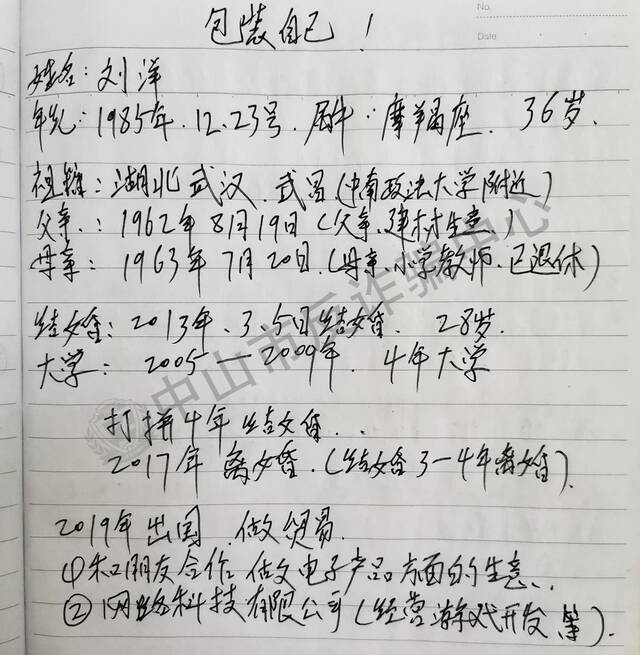 No.
Date
包装自己！
姓名：刘洋
年纪：1985年.12.23号.属牛：摩羯座. 36岁.
祖籍：湖北武汉.武昌(中南政法大学附近)
父亲.：1962年8月19日(父亲.建材生意.)
母亲：1963年7月20日.(母亲.小学教师.已退休)
结婚：2013年.3.5日结婚. 28岁.
大学：2005—2009年. 4年大学
打拼4年结婚..
2017年离婚.(结婚3-4年离婚).
2019年出国.做贸易.
①和朋友合作做电子产品方面的生意.
②网络科技有限公司(经营游戏开发等).
中山市反诈骗中心